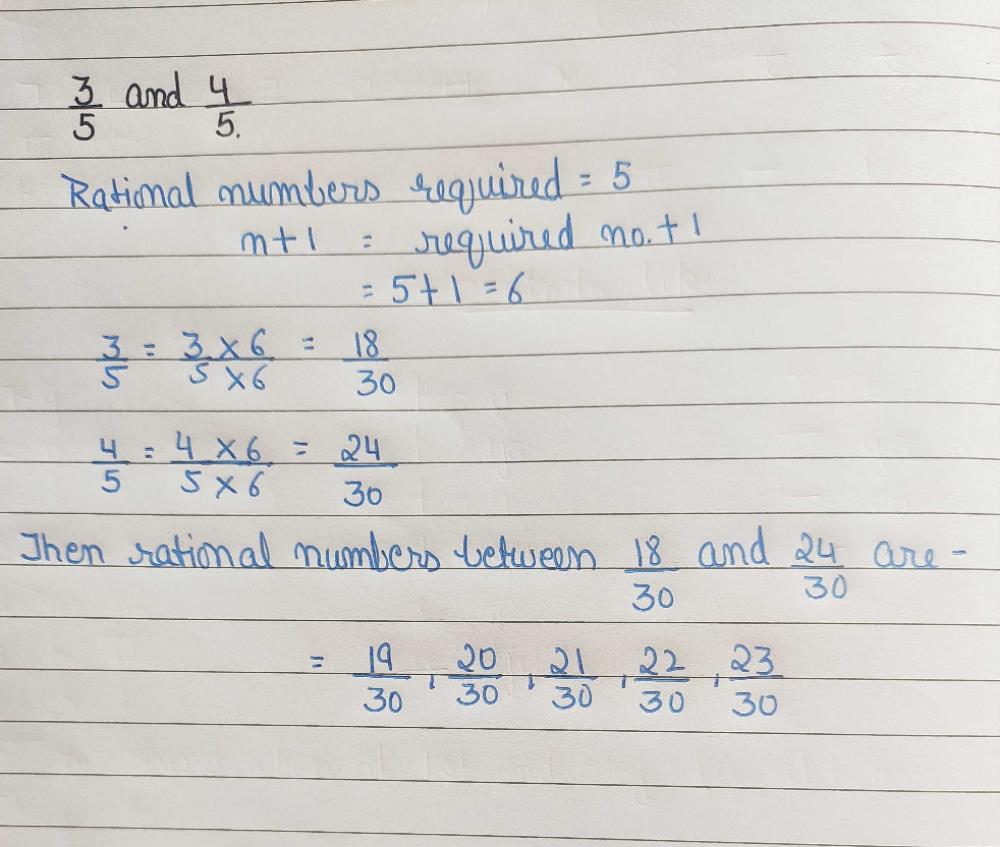 3/5 and 4/5.
Rational numbers required = 5
n+1 = required no. + 1
= 5+1 = 6
3/5 = 3 × 6/5 × 6 = 18/30
4/5 = 4 × 6/5 × 6 = 24/30
Then rational numbers between 18/30 and 24/30 are -
= 19/30, 20/30, 21/30, 22/30, 23/30